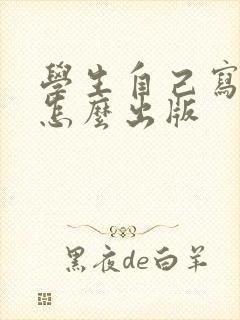 學生自己寫
怎麼出版
黑夜de白羊